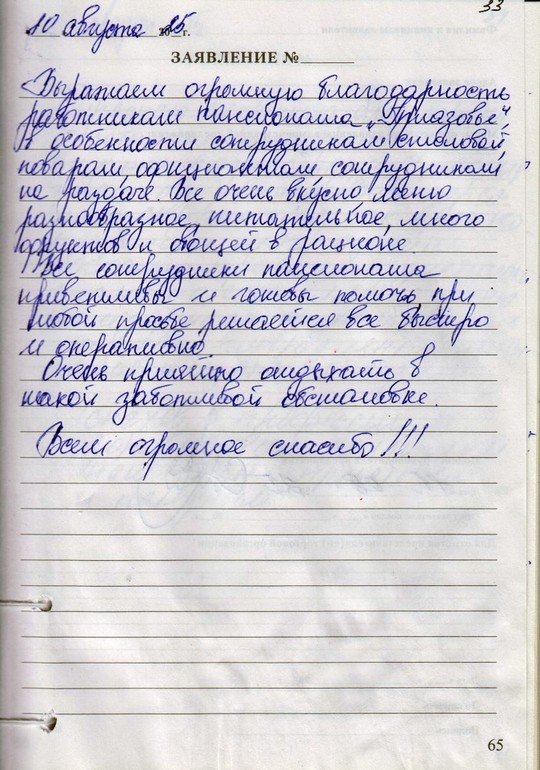 33
10 августа 2015 г.
ЗАЯВЛЕНИЕ №
Выражаем огромную благодарность
работникам пансионата „Приазовье"
в особенности сотрудникам столовой,
поварам, официантам, сотрудникам
на раздаче. Все очень вкусно, меню
разнообразное, питательное, много
фруктов и овощей в рационе.
Все сотрудники пансионата
приветливы и готовы помочь, при
любой просьбе решается все быстро
и оперативно.
Очень приятно отдыхать в
такой заботливой обстановке.
Всем огромное спасибо!!!
65